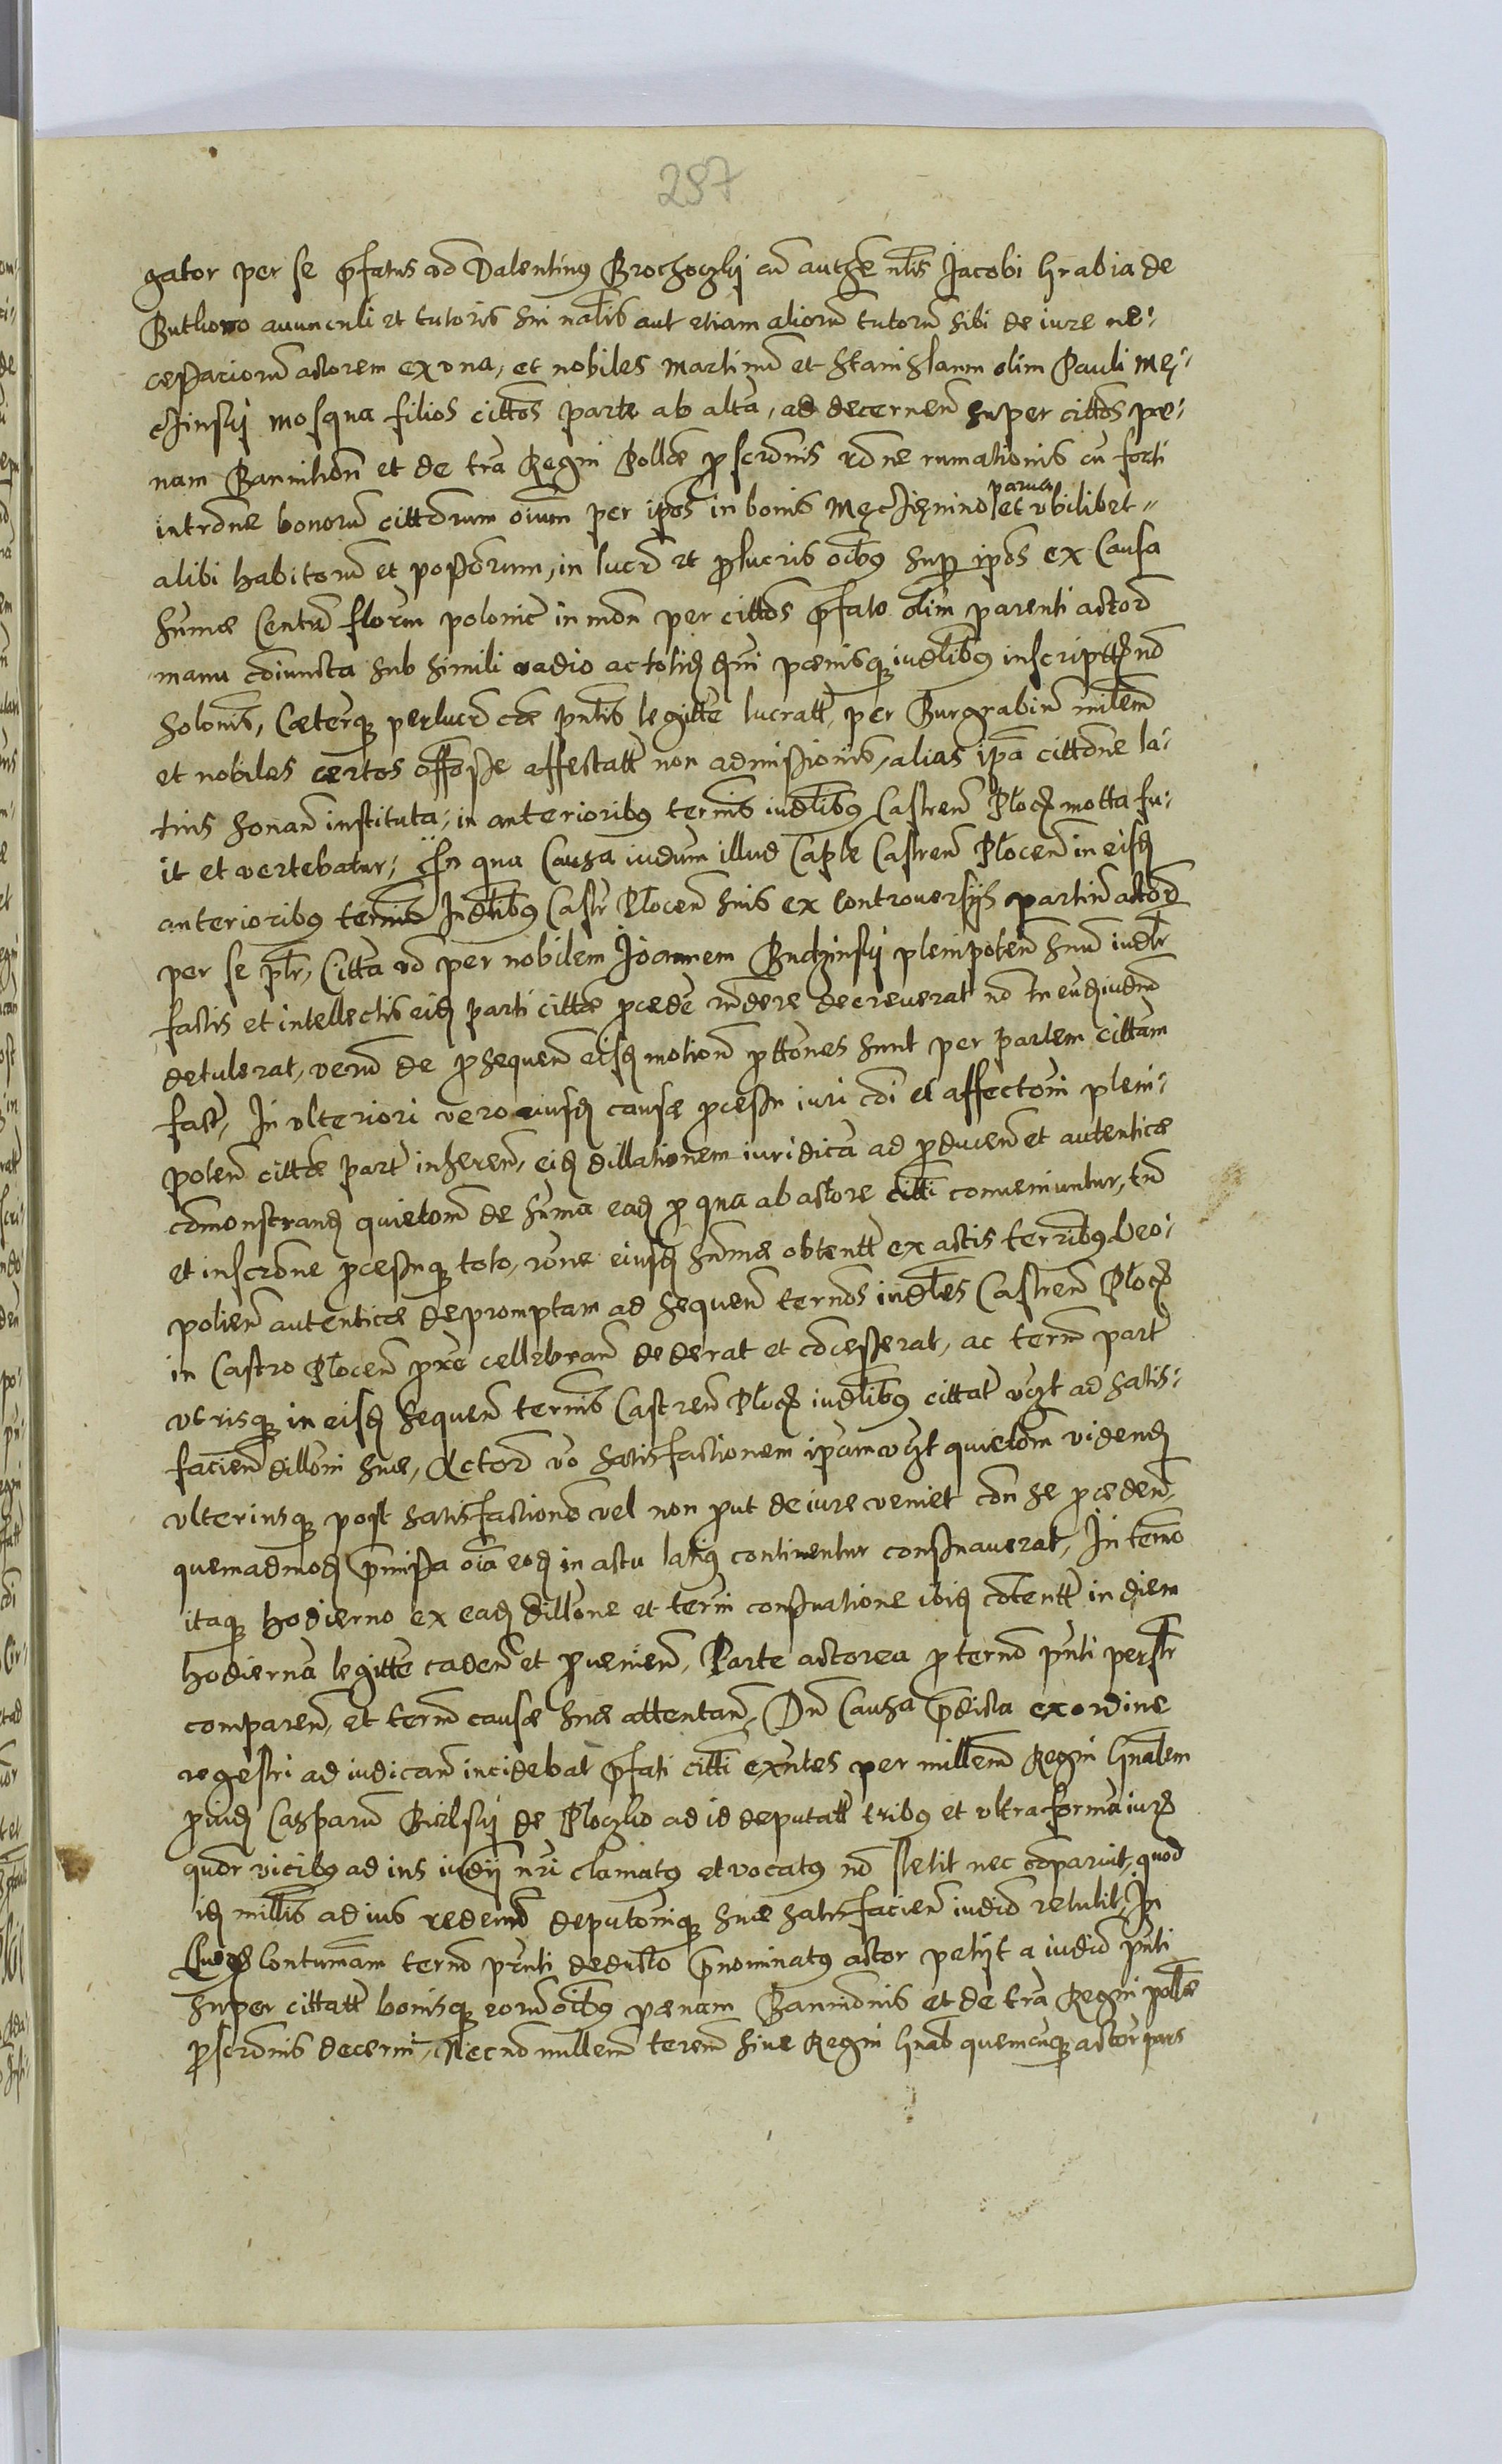 287
gator per se p̄fatus ad Valentinꝯ Brochoczky cū authē nłis Jacobi Hrabia de
Buthono avunculi et tutoris sui nalis aut etiam aliorū tutorū sibi de iure ne-
cessariorū actorem ex una, et nobiles Martinū et Stanislaum olim Pauli Męi-
czinsky Mosqua filios cittos parte ab alta, ad decernen̄ super cittos pæ-
nam Bannition̄ et de tra Regni Pollæ proscronis rone rumationis cū forti
intrōne bonorū cittorum oīum per ipos in bonis Męczięnino parua et ubilibet
alibi habitorū et possorum, in lucro et pro lucris oībꝯ sup ipos ex Causa
sumæ Centū florın polonic in mon̄ per cittos p̄fato olim parenti actor̄
manu coiuncta sub simili vadio ac totidē dni pænisqꝫ iudlibꝯ inscriptæ nō
solonis, Cæterqꝫ per lucr̄ cæ pntis legitte lucratt, per Burgrabiū milem̄
et nobiles certos offose affectatt non admissionis, alias ipa cittōne la-
tius sonan̄ instituta, in anterioribꝯ termīs iudlibꝯ Castren̄ Plocē motta fu-
it et vertebatur, In qua Causa iudum illud Caple Castren̄ Plocen̄ in eisdē
anterioribꝯ termīs Judlibꝯ Castr̄ Plocen̄ suis ex controversys partiū actor̄
per se pr̄, Citta vō per nobilem Joannem Budzinsky plenipoten̄ suū iudlr
factis et intellectis eidē parti cittæ procedē rndere decreverat nō tn eūdē iudm̄
detulerat, verū de prosequen̄ eisdē motion̄ prottōnes sunt per partem cittam
factæ, In ulteriori vero eiusdē causæ processu iuri coi et affectōni pleni-
poten̄ cittæ part inheren̄, eidē dillationem iuridicā ad producen̄ et autenticæ
comonstrandē quietom̄ de suma eadē pro qua ab actore citti conveniuntur, tū
et inscrone processuqꝫ toto, rōne eiusdē sumæ obtentæ ex actis terribꝯ Leo-
polien̄ autenticæ depromptam ad sequen̄ termos iudles Castren̄ Plocē
in Castro Plocen̄ proxe cellebran̄ dederat et cocesserat, ac term̄ part
utrisqꝫ in eisdē sequen̄ termīs Castren̄ Plocē iudlibꝯ cittatæ vczt ad satis-
facien̄ dillōni suæ, Actor̄ vō satisfactionem ipsam vczt quietom̄ videndē
ulteriusqꝫ post satisfactionē vel non prout de iure veniet coī se proceden̄,
quemadmodē p̄missa oīa eodē in actu latiꝯ continentur conservaverat, In termo
itaqꝫ hodierno ex eadē dillōne et termi conservatione ibidē cotentæ in diem
hodiernā legitte caden̄ et provenien̄, Parte actorea pro termo pnti persolr
comparen̄, et term̄ causæ suæ attentan̄, Dū Causa p̄dicta ex ordine
regestri ad iudican̄ incidebat p̄fati citti exntes per millem̄ Regni Gnalem
providē Casparū Bielsky de Ploczko ad id deputatt tribꝯ et ultra formā iurē
quor vicibꝯ ad ius iudij nri clamatꝯ et vocatꝯ nō stetit nec coparuit, quod
idē millis ad ius redeun̄do deputōnisqꝫ suæ satisfacien̄ iudio retulit, In
Quorē Contumam̄ termo pnti deducto p̄nominatꝯ actor petyt a iudio pnti
super cittatt bonisqꝫ eorū oībꝯ pænam Bannōnis et de tra Regni pollæ
proscronis decerni, Necnō millem̄ terrem̄ sive Regni Gnal quemcūqꝫ actor pars